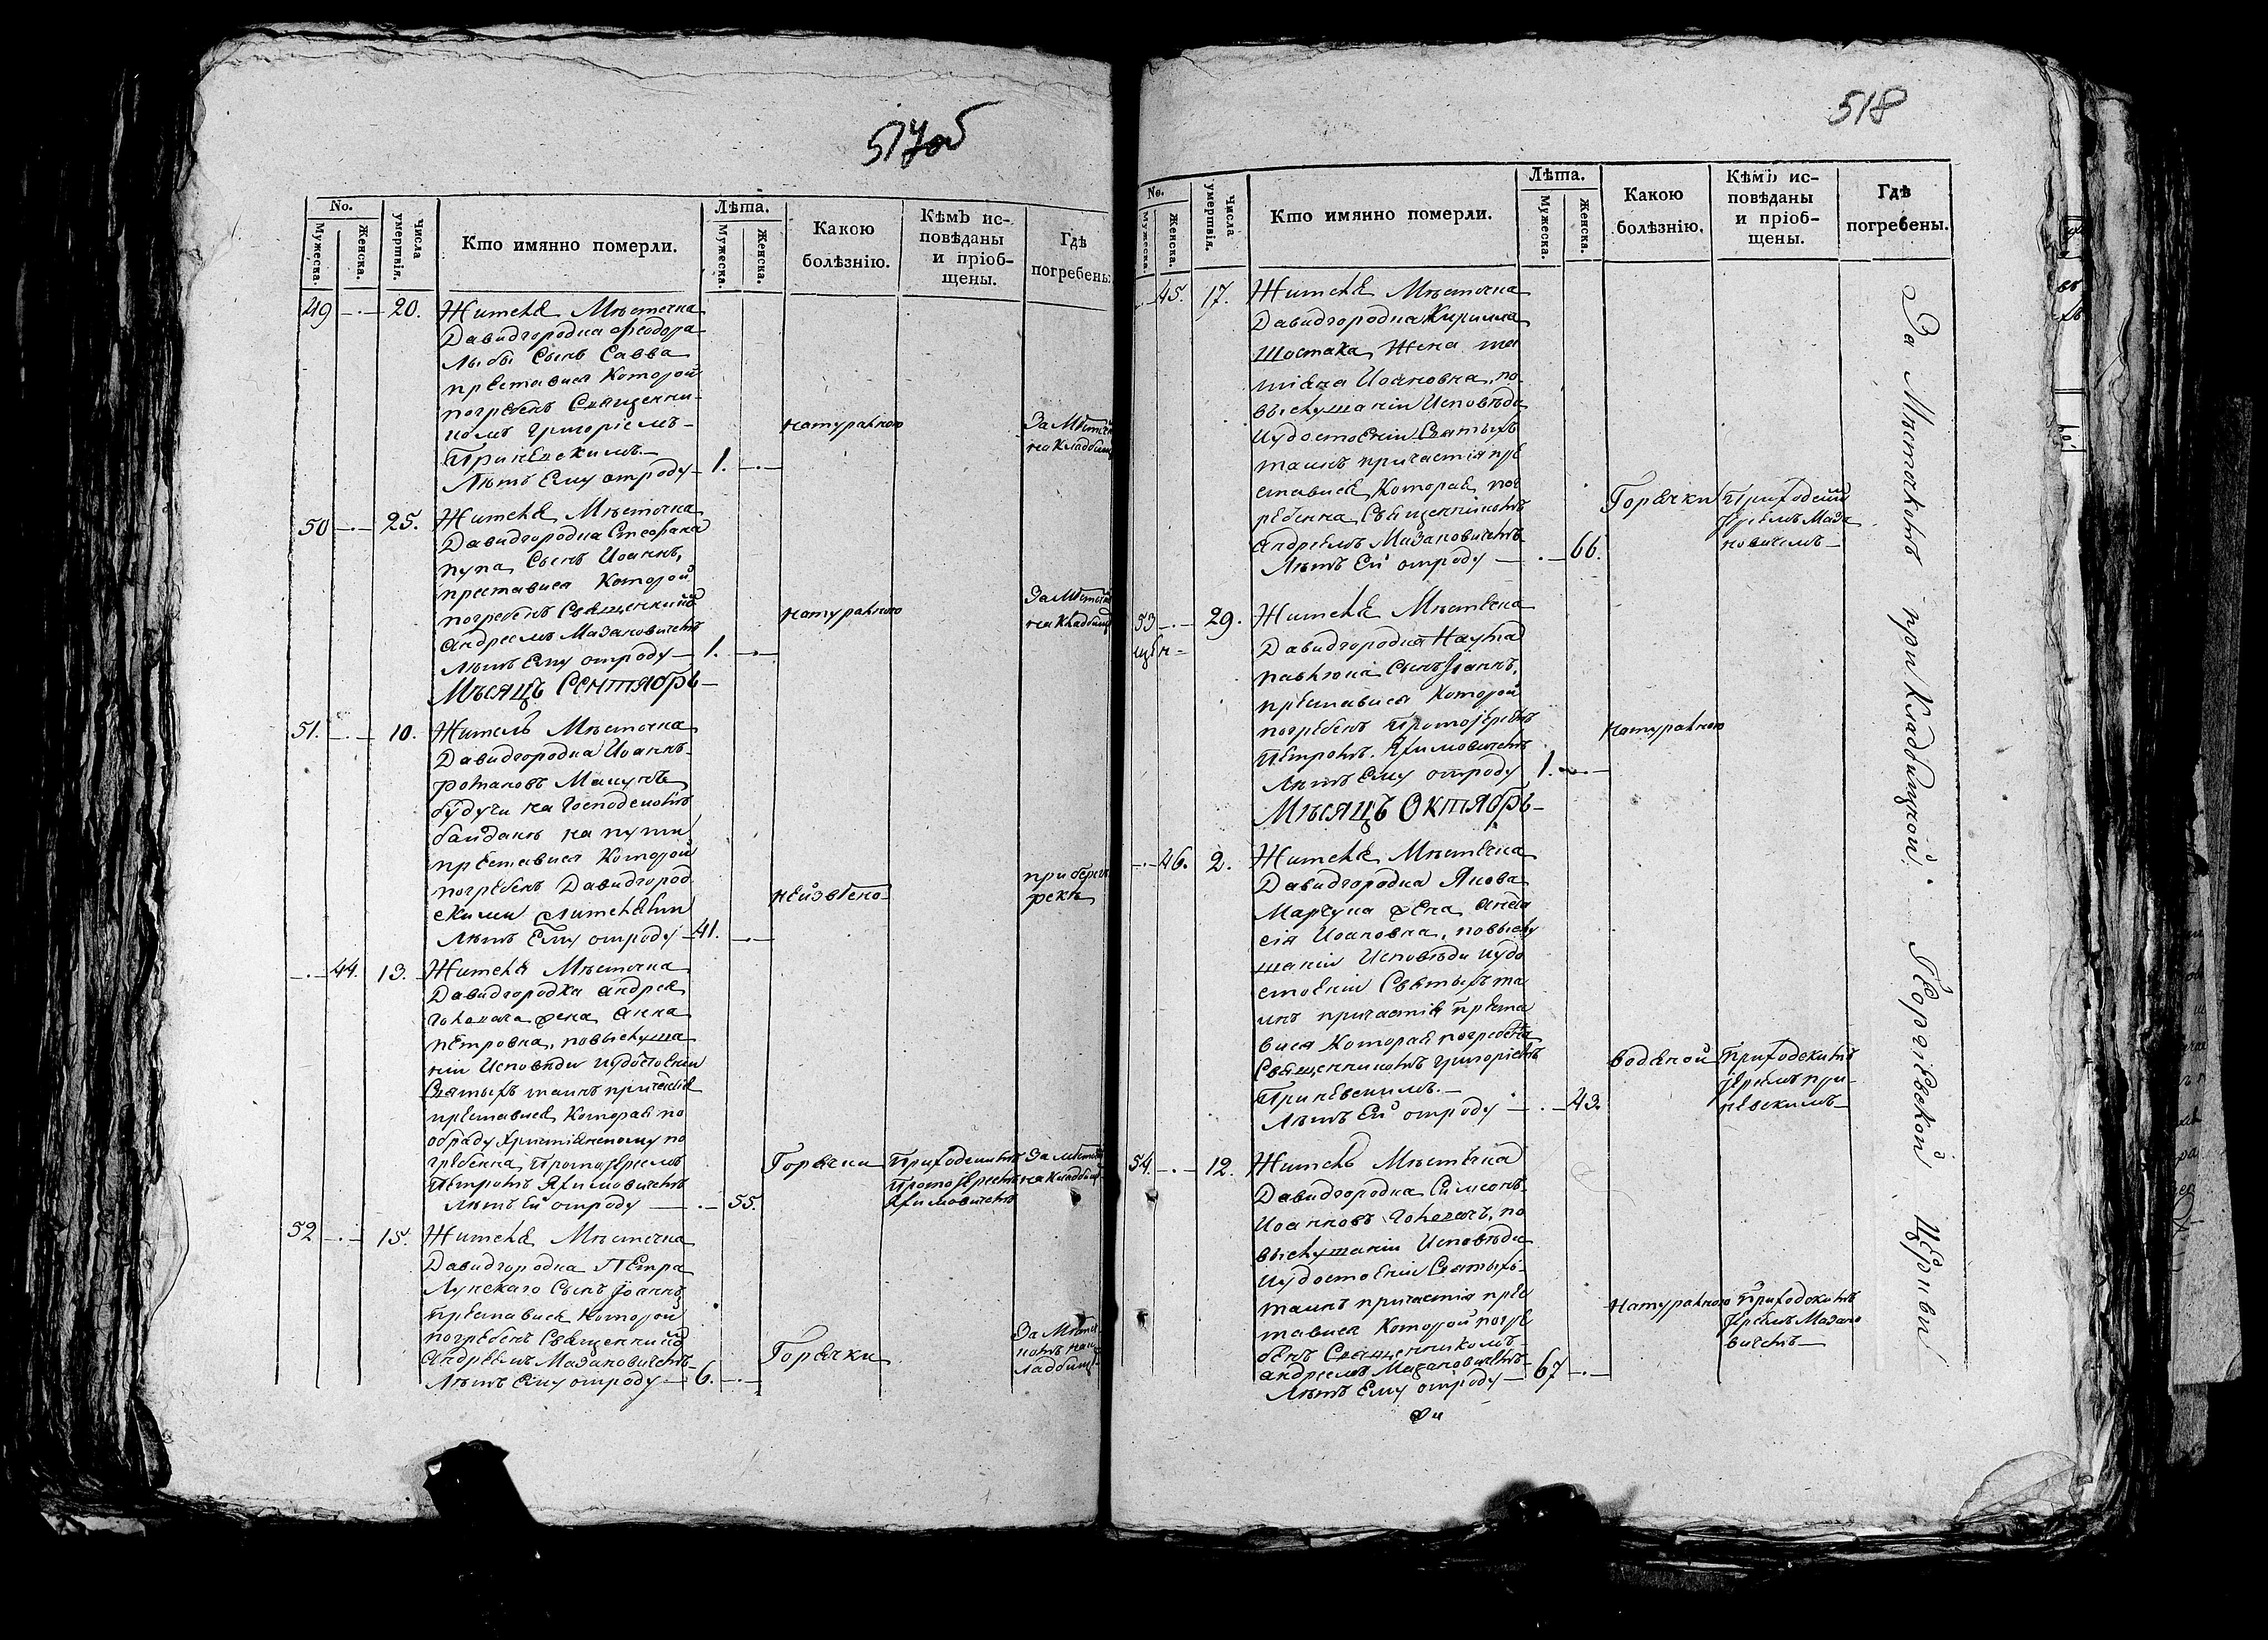 517об
No.
Мужеска.
Женска.
Числа умертвія.
Кто имянно померли.
Лѣта.
Мужеска.
Женска.
Какою болѣзнію.
Кѣмъ ис-
повѣданы
и пріоб-
щены.
Гдѣ
погребены
49 20. Жителя Мѣстечка
Давидгородка Ѳеодора
Лыбы Сынъ Савва
преставися Которой
погребенъ Священни-
комъ Григоріемъ
Приневскимъ.
Лѣтъ Ему отроду 1.
натуралною
За Мѣстеч
на Кладбищ
50 25. Жителя Мѣстечка
Давидгородка Стефана
пупа Сынъ Иоаннъ,
преставися Которой
погребенъ Священником
Андреемъ Мазановичемъ
Лѣтъ Ему отроду 1.
натуралною
За Мѣстеч
на Кладбищ
Мѣсяцъ Сентябрь
51. 10. Житель Мѣстечка
Давидгородка Иоаннъ
Романовъ
будучи на Господскомъ
байдакѣ на пути
преставися Которой
погребенъ Давидгород
скими жителями
Лѣтъ Ему отроду 41.
неизвѣсно
при берегѣ
реки
44. 13. Жителя Мѣстечка
Давидгородка Андрея
Голенача жена Анна
Петровна, по выслуша
ніи Исповѣди и удостоении
Святыхъ таинъ причастія
преставися Которая по
обряду Христіянскому по
гребенна Протоіереемъ
Петромъ Якимовичемъ
Лѣтъ Ей отроду 55.
Горячки
Приходскимъ
Протоіереемъ
Якимовичемъ
За Мѣстеч
на Кладбищ
52 15. Жителя Мѣстечка
Давидгородка Петра
Лунскаго Сынъ Іоаннъ
преставися Которой
погребенъ Священником
Андреемъ Мазановичемъ
Лѣтъ Ему отроду 6.
Горячки
За Мѣстеч
комъ на к
ладбищ
518
No.
Мужеска.
Женска.
Числа умертвія.
Кто имянно померли.
Лѣта.
Мужеска.
Женска.
Какою болѣзнію.
Кѣмъ ис-
повѣданы
и пріоб-
щены.
Гдѣ
погребены.
45. 17. Жителя Мѣстечка
Давидгородка Кирилла
Шостака Жена та
тіяна Иоановна, по
выслушаніи Исповѣди
и удостоеніи Святыхъ
таинъ причастія пре
ставися Которая пог
ребенна Священникомъ
Андреемъ Мазановичемъ
Лѣтъ Ей отроду 66.
Горячки
Приходским
Іереемъ Маза
новичемъ
53 29. Жителя Мѣстечка
Давидгородка Наума
павлюка Сынъ Іоаннъ,
преставися Которой
погребенъ Протоіереемъ
Петромъ Якимовичемъ
Лѣтъ Ему отроду 1.
натуралною
Мѣсяцъ Октябрь
46. 2. Жителя Мѣстечка
Давидгородка Якова
Марчука жена Анаста
сія Иоановна, по выслу
шаніи Исповѣди и удо
стоеніи Святыхъ та
инъ причастія преста
вися Которая погребена
Священникомъ Григоріемъ
Приневскимъ.
Лѣтъ Ей отроду 43.
водяной
Приходскимъ
Іереемъ при-
невскимъ
54. 12. Житель Мѣстечка
Давидгородка Симеонъ
Иоанновъ Голеначъ, по
выслушаніи Исповѣди
и удостоеніи Святыхъ
таинъ причастія прес
тавися Которой погре
бенъ Священникомъ
Андреемъ Мазановичемъ
Лѣтъ Ему отроду 67
натуралною
Приходскимъ
Іереемъ Мазано
вичемъ
За Мѣстечкомъ при Кладбищной Георгіевской Церкви